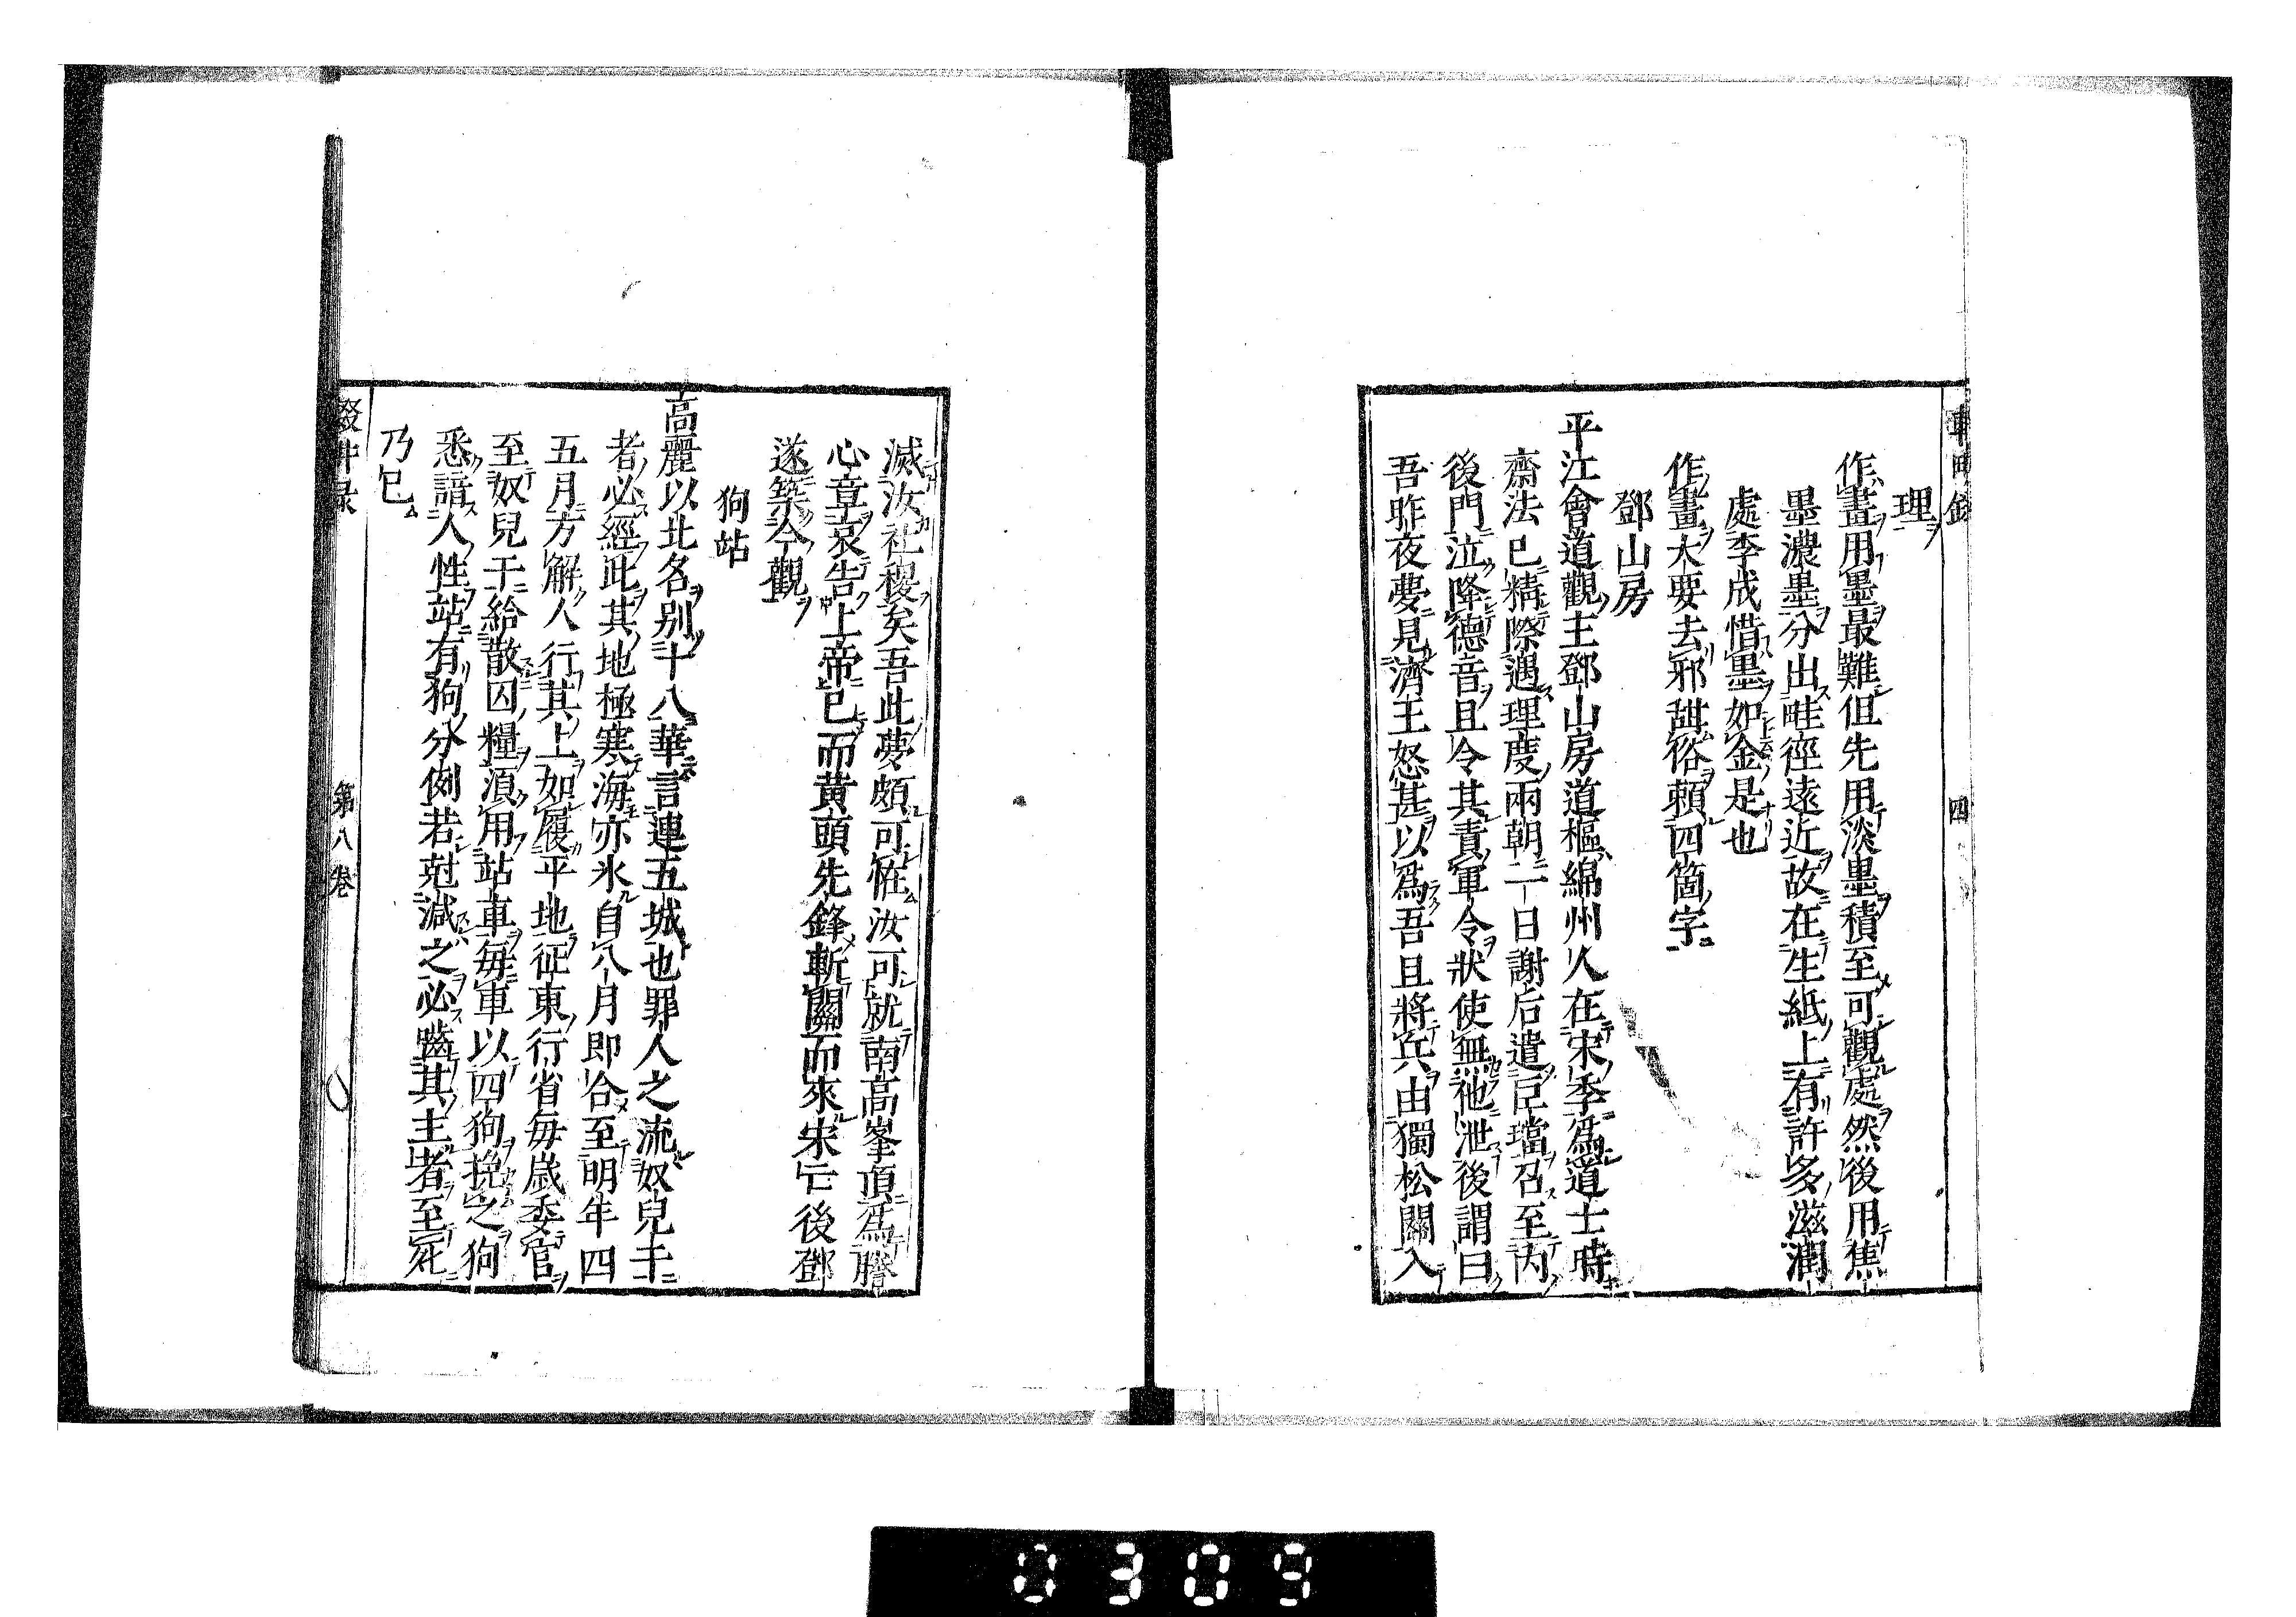 四
理
作畫用墨最難但先用淡墨積至可觀處然後用焦
墨濃墨分出畦徑遠近故在生紙上有許多滋潤
處李成惜墨如金是也
作畫大要去邪甜俗賴四箇字
鄧山房
平江會道觀主鄧山房道樞綿州人在宋季爲道士時
齋法已精際遇理度兩朝一日謝后遣巨璫召至内
後門泣降德音且令其責軍令狀使無他泄後謂曰
吾昨夜夢見濟王怒甚以爲吾且將兵由獨松關入
滅汝社稷矣吾此夢頗可恠汝可就南高峯頂爲謄
心章哀告上帝已而黄頭先鋒斬關而來宋亡後鄧
遂築今觀
狗站
高麗以北名別十八華言連五城也罪人之流奴兒干
者必經此其地極寒海亦氷自八月即合至明年四
五月方解人行其上如履平地征東行省毎歲委官
至奴兒干給散囚糧湏用站車毎車以四狗挽之狗
悉諳人性站有狗分例若尅減之必嚙其主者至死
乃已
第八卷
0309